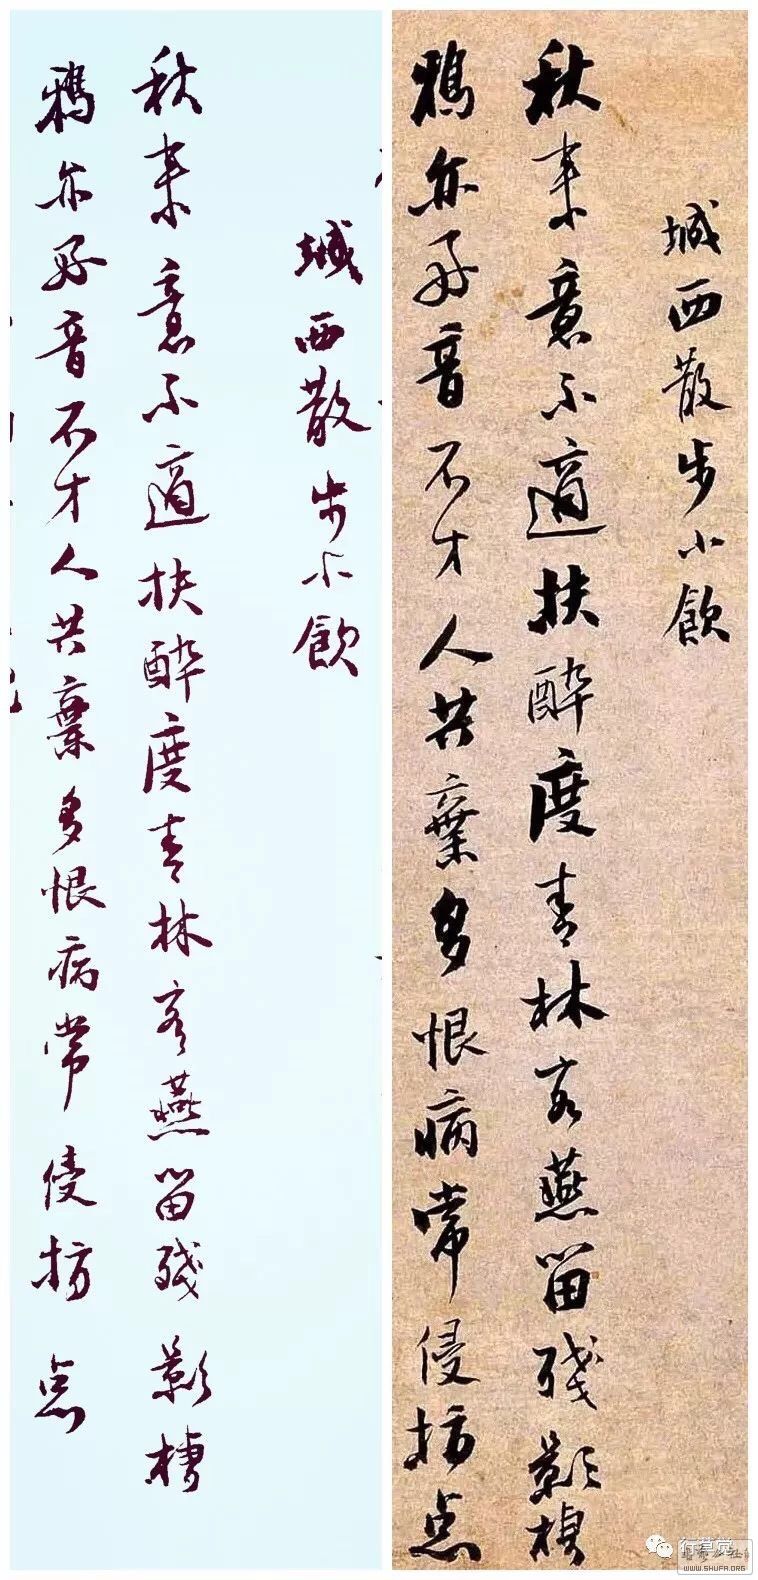 城西散步小飲
秋來意不適扶醉度青林客燕留殘影棲
鴉亦好音不才人共棄多恨病常侵点
城西散步小飲
秋來意不適扶醉度青林客燕留殘影棲
鴉亦好音不才人共棄多恨病常侵点
WWW.SHUFA.ORG